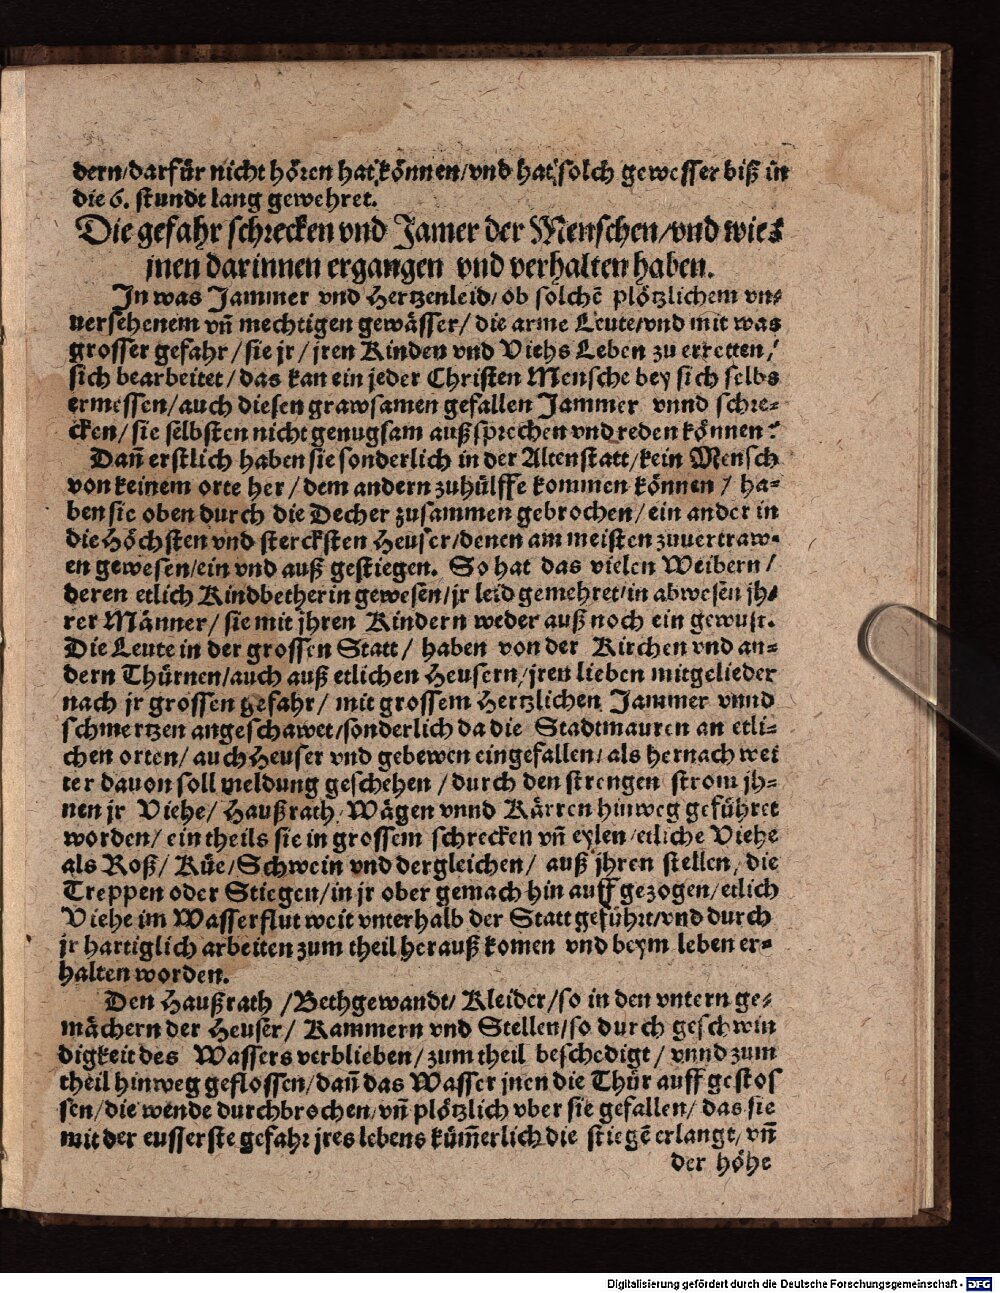 dern/darfür nicht hören hat können/vnd hat solch gewesser biß in
die 6. stundt lang gewehret.
Die gefahr schrecken vnd Jamer der Menschen/vnd wie s
jnen darinnen ergangen vnd verhalten haben.
In was Jammer vnd Hertzenleid/ ob solchē plötzlichem vn-
uersehenem vñ mechtigen gewässer/ die arme Leute/vnd mit was
grosser gefahr/ sie jr/ jren Kinden vnd Viehs Leben zu erretten/
sich bearbeitet/ das kan ein jeder Christen Mensche bey sich selbs
ermessen/ auch diesen grawsamen gefallen Jammer vnnd schre-
cken/ sie selbsten nicht genugsam außsprechen vnd reden können?
Dañ erstlich haben sie sonderlich in der Altenstatt/kein Mensch
von keinem orte her/ dem andern zuhülffe kommen können/ ha-
ben sie oben durch die Decher zusammen gebrochen/ ein ander in
die Höchsten vnd stercksten Heuser/denen am meisten zuuertraw-
en gewesen/ein vnd auß gestiegen. So hat das vielen Weibern/
deren etlich Kindbetherin gewesen/jr leid gemehret/in abwesen jh-
rer Männer/ sie mit jhren Kindern weder auß noch ein gewust.
Die Leute in der grossen Statt/ haben von der Kirchen vnd an-
dern Thürnen/auch auß etlichen Heusern/jren lieben mitgelieder
nach jr grossen gefahr/ mit grossem Hertzlichen Jammer vnnd
schmertzen angeschawet/sonderlich da die Stadtmauren an etli-
chen orten/ auch Heuser vnd gebewen eingefallen/ als hernach wei
ter dauon soll meldung geschehen/ durch den strengen strom jh-
nen jr Viehe/ Haußrath/ Wägen vnnd Kärren hinweg geführet
worden/ ein theils sie in grossem schrecken vñ eylen/etliche Viehe
als Roß/ Küe/Schwein vnd dergleichen/ auß jhren stellen/ die
Treppen oder Stiegen/in jr ober gemach hin auff gezogen/etlich
Viehe im Wasserflut weit vnterhalb der Statt geführt/vnd durch
jr hartiglich arbeiten zum theil herauß komen vnd beym leben er-
halten worden.
Den Haußrath/Bethgewandt/ Kleider/so in den vntern ge-
mächern der Heuser/ Kammern vnd Stellen/so durch geschwin
digkeit des Wassers verblieben/zum theil beschedigt/ vnnd zum
theil hinweg geflossen/dañ das Wasser jnen die Thür auff gestos
sen/die wende durchbrochen/vñ plötzlich vber sie gefallen/ das sie
mit der eusserste gefahr jres lebens küm̄erlich die stiegē erlangt/vñ
der höhe
Digitalisierung gefördert durch die Deutsche Forschungsgemeinschaft - DFG